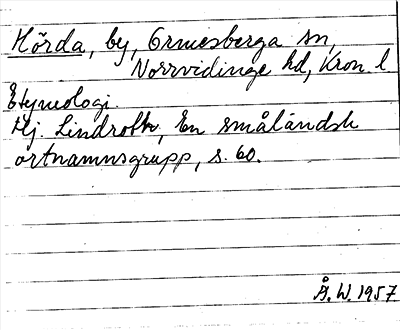 Hörda, by, Ormesberga sn,
Norrvidinge hd, Kron. l
Etymologi.
Hj. Lindroth, En småländsk
ortnamnsgrupp, s. 60.
Å. W. 1957